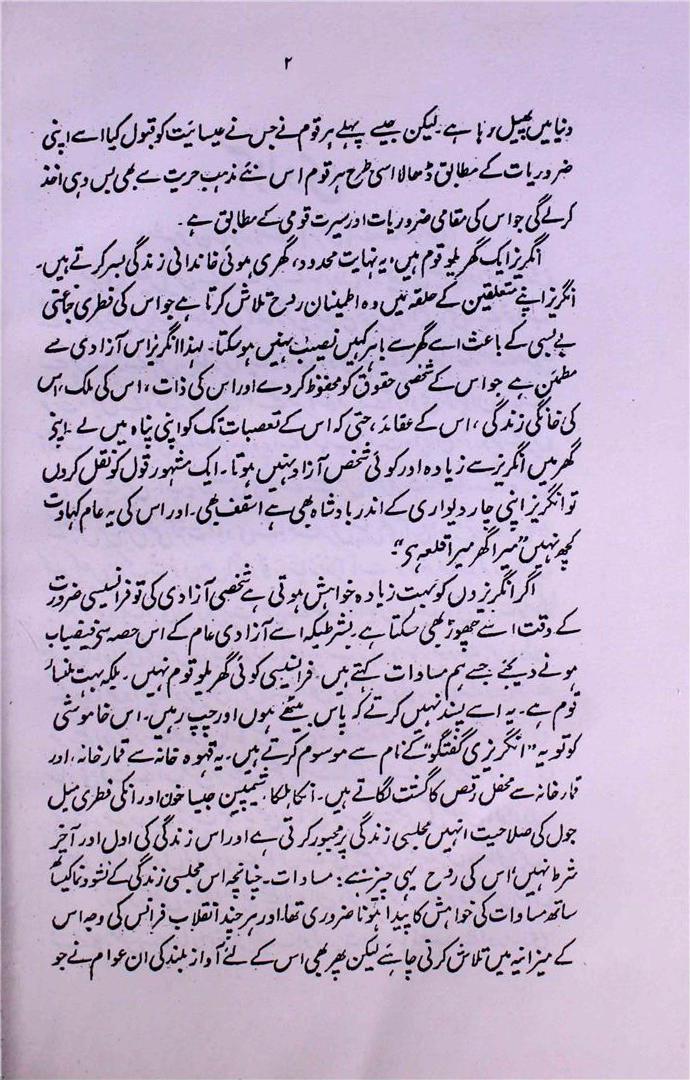 ۲
دنیا میں پھیل رہا ہے۔ لیکن جیسے پہلے ہر قوم نے جس نے عیسائیت کو قبول کیا اسے اپنی
ضروریات کے مطابق ڈھالا اسی طرح ہر قوم اس نئے مذہب حریت سے بھی بس وہی اخذ
کرلے گی جو اس کی مقامی ضروریات اور سیرت قومی کے مطابق ہے۔
انگریز ایک گھریلو قوم ہیں، یہ نہایت محدود، گھری ہوئی خاندانی زندگی بسر کرتے ہیں۔
انگریز اپنے متعلقین کے حلقہ میں وہ اطمینان روح تلاش کرتا ہے جو اس کی فطری جماعتی
بے بسی کے باعث اسے گھر سے باہر کہیں نصیب نہیں ہوسکتا۔ لہذا انگریز اس آزادی سے
مطمئن ہے جو اس کے شخصی حقوق کو محفوظ کردے اور اس کی ذات، اس کی ملک، اس
کی خانگی زندگی، اس کے عقائد، حتی کہ اس کے تعصبات تک کو اپنی پناہ میں لے۔ اپنے
گھر میں انگریز سے زیادہ اور کوئی شخص آزاد نہیں ہوتا۔ ایک مشہور قول کو نقل کروں
تو انگریز اپنی چار دیواری کے اندر بادشاہ بھی ہے اسقف بھی۔ اور اس کی یہ عام کہاوت
کچھ نہیں "میرا گھر میرا قلعہ ہی"۔
اگر انگریزوں کو بہت زیادہ خواہش ہوتی ہے شخصی آزادی کی تو فرانسیسی ضرورت
کے وقت اسے چھوڑ بھی سکتا ہے۔ بشرطیکہ اسے آزادی عام کے اس حصہ سے فیضیاب
ہونے دیجئے جسے ہم مساوات کہتے ہیں۔ فرانسیسی کوئی گھریلو قوم نہیں۔ بلکہ بہت ملنسار
قوم ہے۔ یہ اسے پسند نہیں کرتے کہ پاس بیٹھے ہوں اور چپ رہیں۔ اس خاموشی
کو تو یہ "انگریزی گفتگو" کے نام سے موسوم کرتے ہیں۔ یہ قہوہ خانہ سے قمار خانہ، اور
قمار خانہ سے محفل رقص کا گشت لگاتے ہیں۔ انکا ہلکا، شمپین جیسا خون اور انکی فطری میل
جول کی صلاحیت انہیں مجلسی زندگی پر مجبور کرتی ہے اور اس زندگی کی اول اور آخر
شرط نہیں، اس کی روح یہی چیز ہے: مساوات۔ چنانچہ اس مجلسی زندگی کے نشوونما کیساتھ
ساتھ مساوات کی خواہش کا پیدا ہونا ضروری تھا۔ اور ہر چند انقلاب فرانس کی وجہ اس
کے میزانیہ میں تلاش کرنی چاہئے لیکن پھر بھی اس کے لئے آواز بلند کی ان عوام نے جو